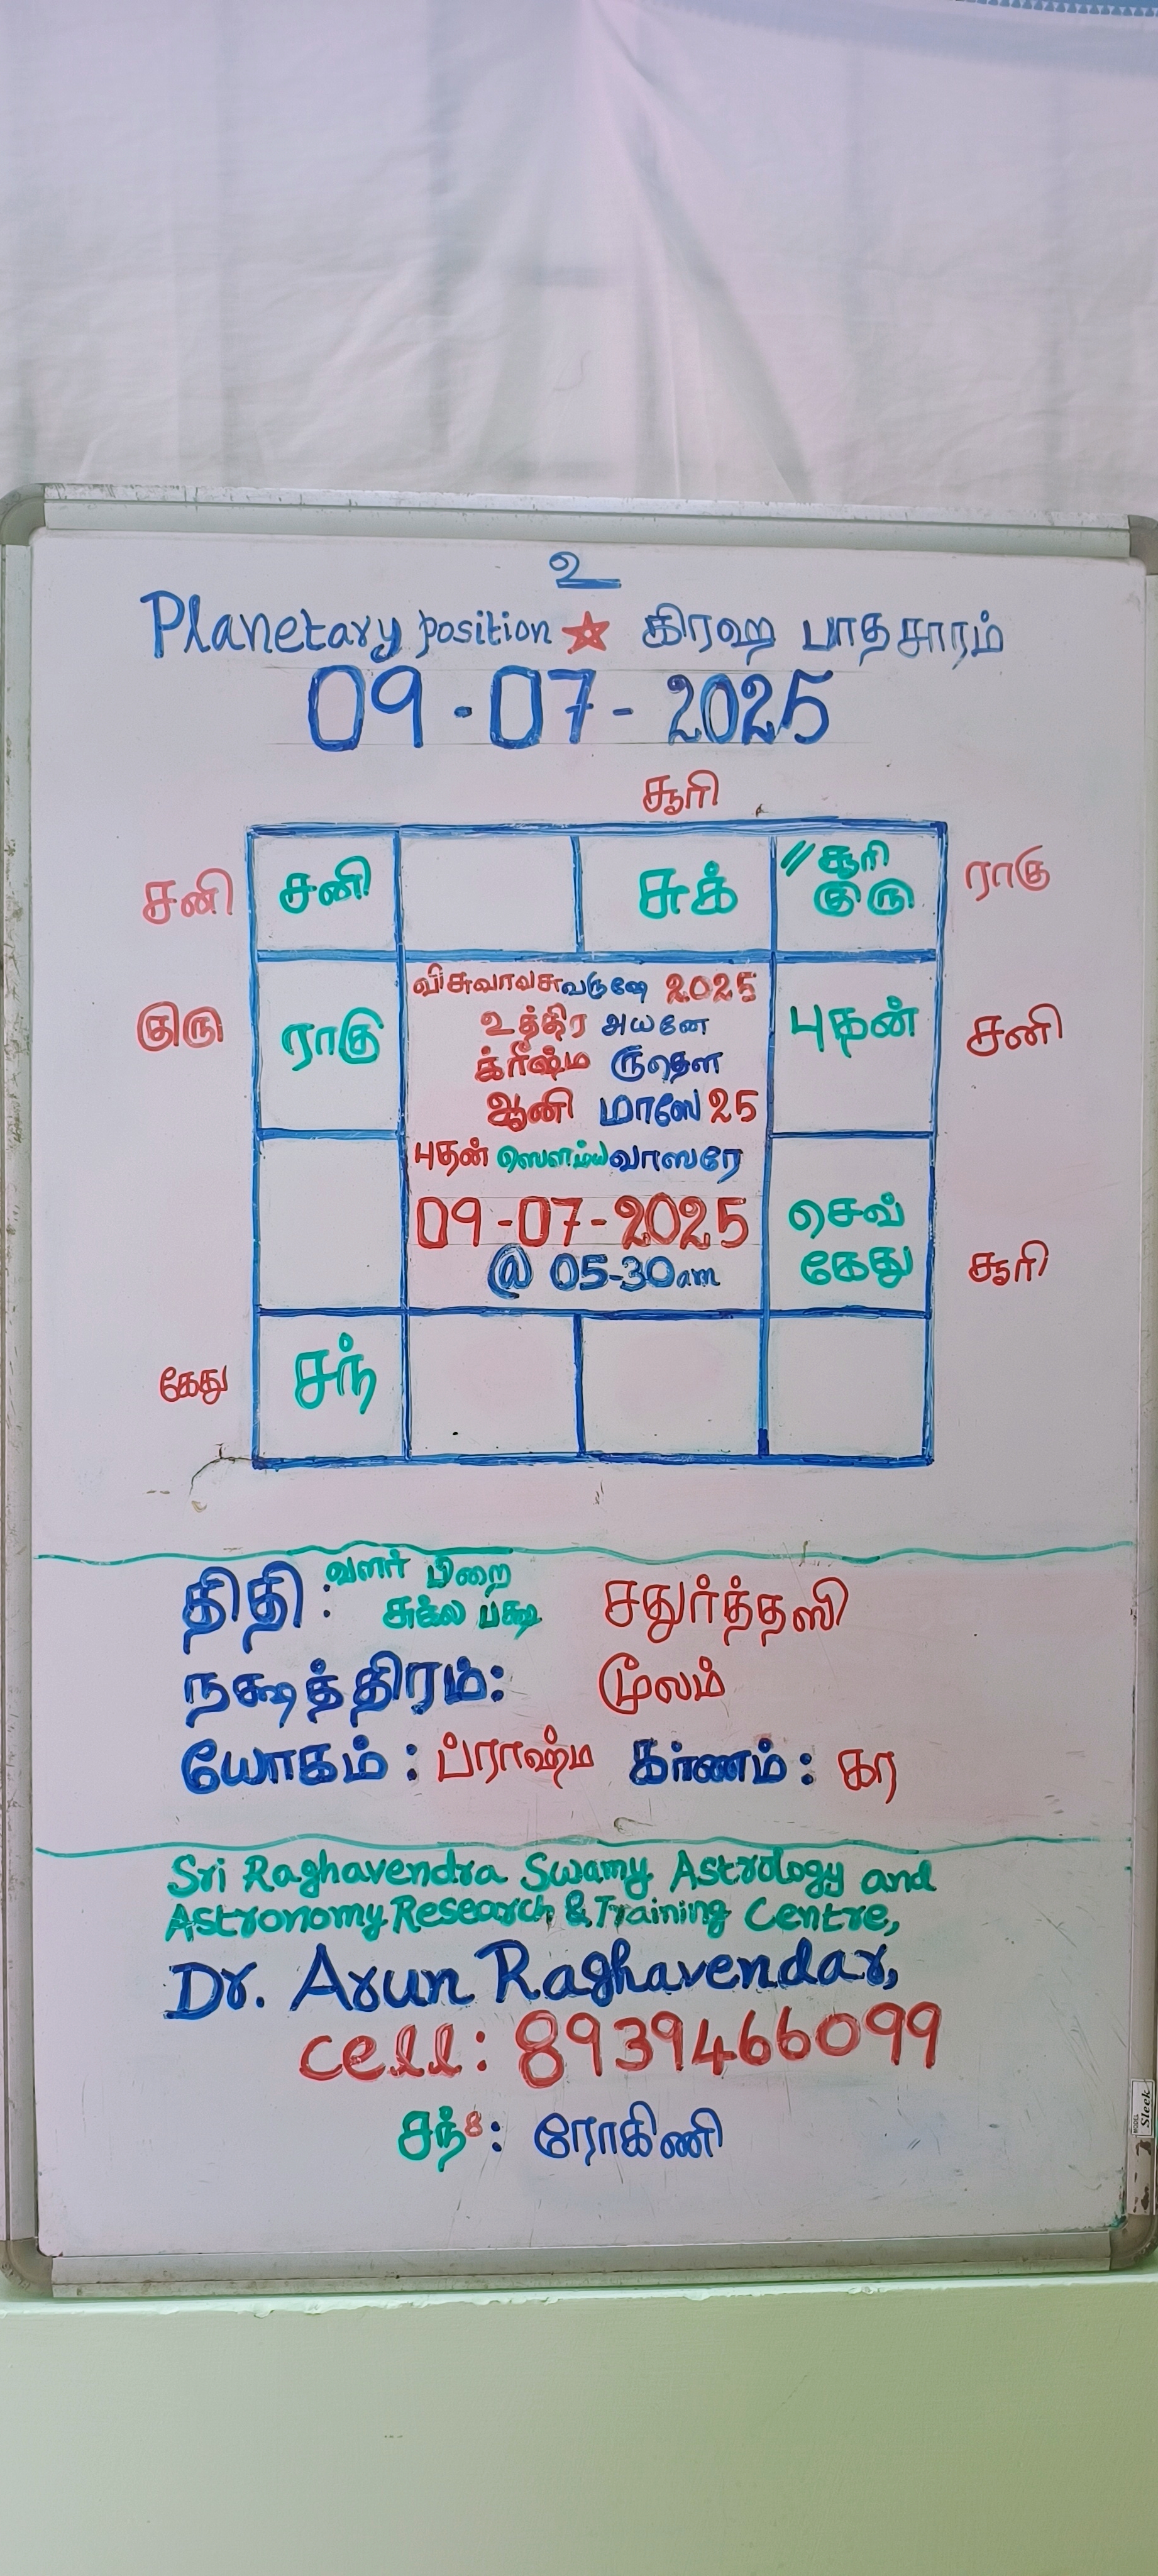 உ
Planetary position ☆ கிரஹ பாதசாரம்
09-07-2025
சூரி
சனி சனி சுக் // சூரி குரு ராகு
குரு ராகு
விசுவாவசுவருஷே 2025
உத்திர அயனே
க்ரீஷ்ம ருதௌ
ஆனி மாஸே 25
புதன் ஸௌம்யவாஸரே
09-07-2025
@ 05-30am
புதன் சனி
செவ்
கேது சூரி
கேது சந்
திதி : வளர் பிறை
சுக்ல பக்ஷ சதுர்த்தஸி
நக்ஷத்திரம்: மூலம்
யோகம் : ப்ராஹ்ம கர்ணம் : கர
Sri Raghavendra Swamy Astrology and
Astronomy Research & Training Centre,
Dr. Arun Raghavendar,
cell: 8939466099
சந்8: ரோகிணி
Sleek